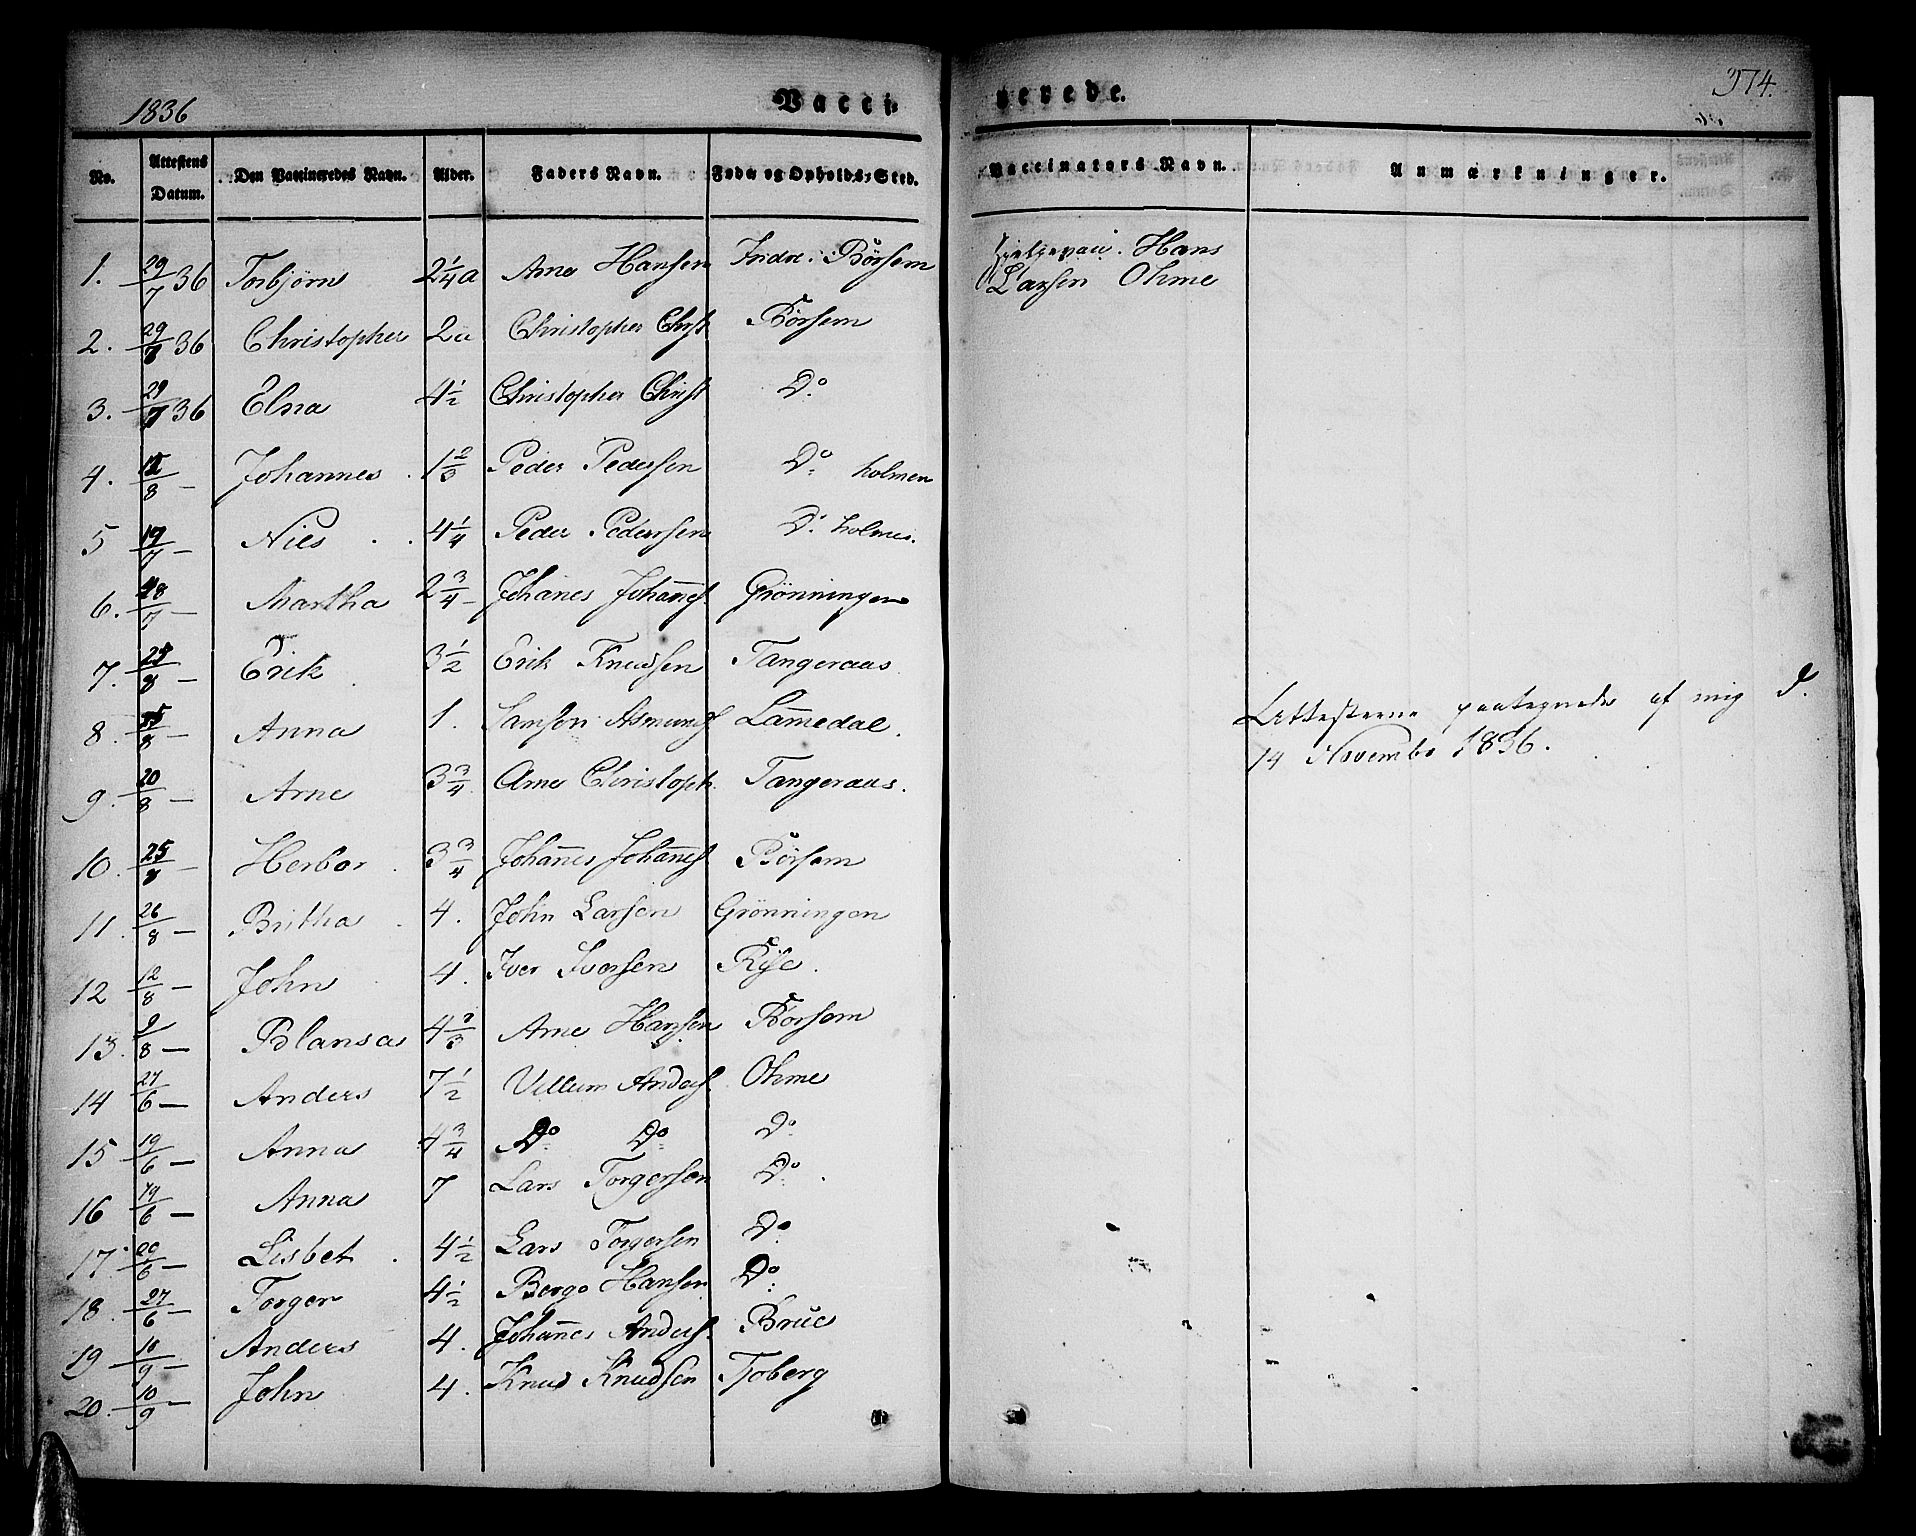 1836 Vacci-
No. Attestens Datum. Den Vaccineredes Navn. Alder. Faders Navn. Føde og Opholds-Sted.
1. 29/7 36 Torbjörn 2 1/4 a Arne Hansen Indre Börsem
2. 29/7 36 Christopher 2 a Christopher Christ. Börsem
3. 29/7 36 Elna 4 1/2 Christopher Christ Do
4. 12/8 — Johannes 1 2/3 Peder Pedersen Do holmen
5 19/7 — Nils 4 1/4 Peder Pedersen Do holmen
6. 18/7 — Martha 2 3/4 Johanes Johannes. Grönningen
7. 25/8 — Erik 3 1/2 Erik Knudsen Tangeraas
8. 25/8 — Anna 1. Samson Asmunds Lammedal.
9. 20/8 — Arne 3 3/4 Arne Christoph. Tangeraas.
10. 25/8 — Herbor 3 3/4 Johannes Johannes Börsem
11. 26/8 — Britha 4. John Larsen Grönningen
12 12/8 — John 4. Iver Iversen Rye.
13. 9/8 — Blansa 4 2/3 Arne Hansen Börsem
14 27/6 — Anders 7 1/2 Villum Anders. Ohme
15 19/6 — Anna 4 3/4 Do Do Do
16 19/6 — Anna 7 Lars Torgersen Do
17. 20/6 — Lisbet 4 1/2 Lars Torgersen Do
18. 27/6 — Torger 4 1/2 Berge Hansen Do
19 10/9 — Anders 4. Johannes Anders. Brue
20. 10/9 — John 4. Knud Knudsen Tjoberg
nerede. 374.
Vaccinators Navn. Anmærkninger.
Hans
Larsen Ohme
Attesterne paategnede af mig d.
14 Novembr 1836.